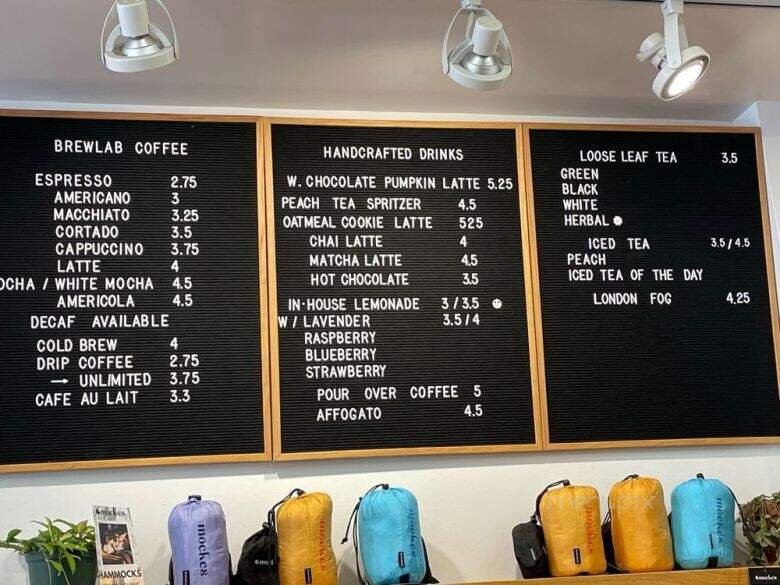 BREWLAB COFFEE
ESPRESSO 2.75
AMERICANO 3
MACCHIATO 3.25
CORTADO 3.5
CAPPUCCINO 3.75
LATTE 4
OCHA / WHITE MOCHA 4.5
AMERICOLA 4.5
DECAF AVAILABLE
COLD BREW 4
DRIP COFFEE 2.75
→ UNLIMITED 3.75
CAFE AU LAIT 3.3
HANDCRAFTED DRINKS
W. CHOCOLATE PUMPKIN LATTE 5.25
PEACH TEA SPRITZER 4.5
OATMEAL COOKIE LATTE 525
CHAI LATTE 4
MATCHA LATTE 4.5
HOT CHOCOLATE 3.5
IN-HOUSE LEMONADE 3 / 3.5
W / LAVENDER 3.5 / 4
RASPBERRY
BLUEBERRY
STRAWBERRY
POUR OVER COFFEE 5
AFFOGATO 4.5
LOOSE LEAF TEA 3.5
GREEN
BLACK
WHITE
HERBAL
ICED TEA 3.5 / 4.5
PEACH
ICED TEA OF THE DAY
LONDON FOG 4.25
mockes
HAMMOCKS
mockes
mockes
mockes
mockes
mockes